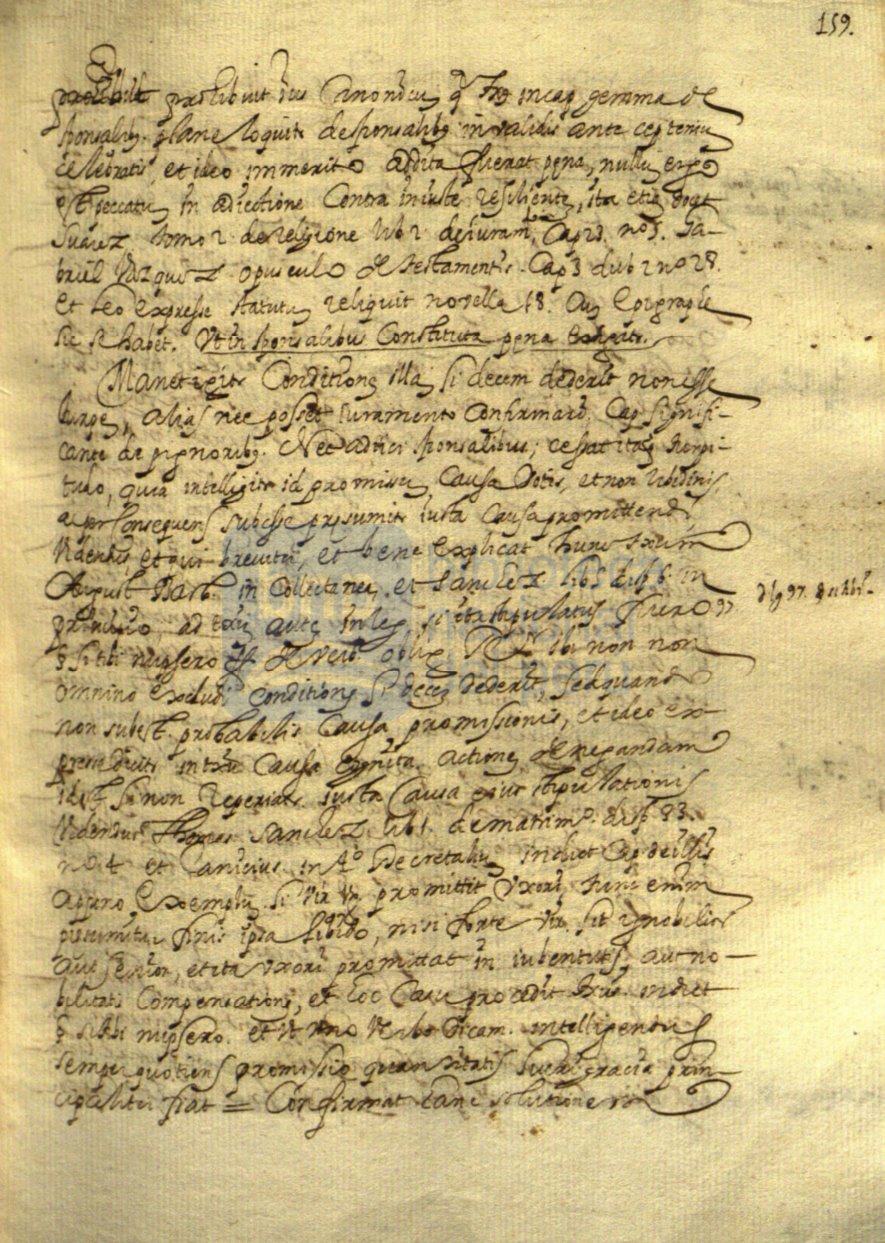 159.
prohibuit ius Canonicu q̃ tex in cap gemma de
sponsalibꝫ. plane loquitr de sponsalibꝫ in validis ante septeniu
celebratis, et ideo immerito addita fuerat pena, nullu ergo
est peccatu in adiectione Contra iniuste resiliente, ita etia docet
Suarez tomo 2 de religione lib 2 de iuram.to Cap 23. nº 5. Ga-
briel Vazquez opusculo de testamentis. Cap 3 dub 2 nº 28.
et Leo expresse statutu reliquit novella 18. Cuꝫ Epigraphe
sic se habet. Vt in sponsalibus Constituta pena exigatr.
Manet igitr Conditione illa, si decem dederit non esse
turpe, alias nec posset iuramento Confirmari. Cap signifi-
cante de pignoribꝫ. Nec adiici sponsalibus, cessat itaq turpi-
tudo, quia intelligitr id promissu, causa Dotis, et non libidinis,
ac per Consequens subesse presumitr iusta Causa promittendi
Videndus, et qui breviter, et bene explicat hunc textum
August Barb. in Collectanea, et Sanchez lib 1 disp 6. in
principio, ad textu aute in leg. si ita stipulatus fuero 97
§ si tibi nupsero ff de verb oblig. ibi non non
omnino excludi conditione si decem dederit, sed quando
non subest probabilis Causa promissionis, et ideo ex-
presse dicitr in textu Causa cognita actione denegandam
id est si non reperiatr iusta Causa eius stipulationis
Videndus Thomas Sanchez lib 1. de matrim.º disp 83.
nº 4 et Canisius in 4º Decretaliu in dict Cap de illis
apposito exemplu si vir promittit vxori, tunc enim
presumitur finis ipsa libido, nisi forte vir sit ignobilior
aut senior, et ita vxori promittat in iubentutis, aut no-
bilitatis Compensatione, et hoc Casu procedit textus in dict
§ si tibi nupsero. et vt vno verbo dicam. intelligendus
semper quotiens promissio quantitatis luxuriæ gracia prin-
cipaliter fiat = Confirmat hanc solutione